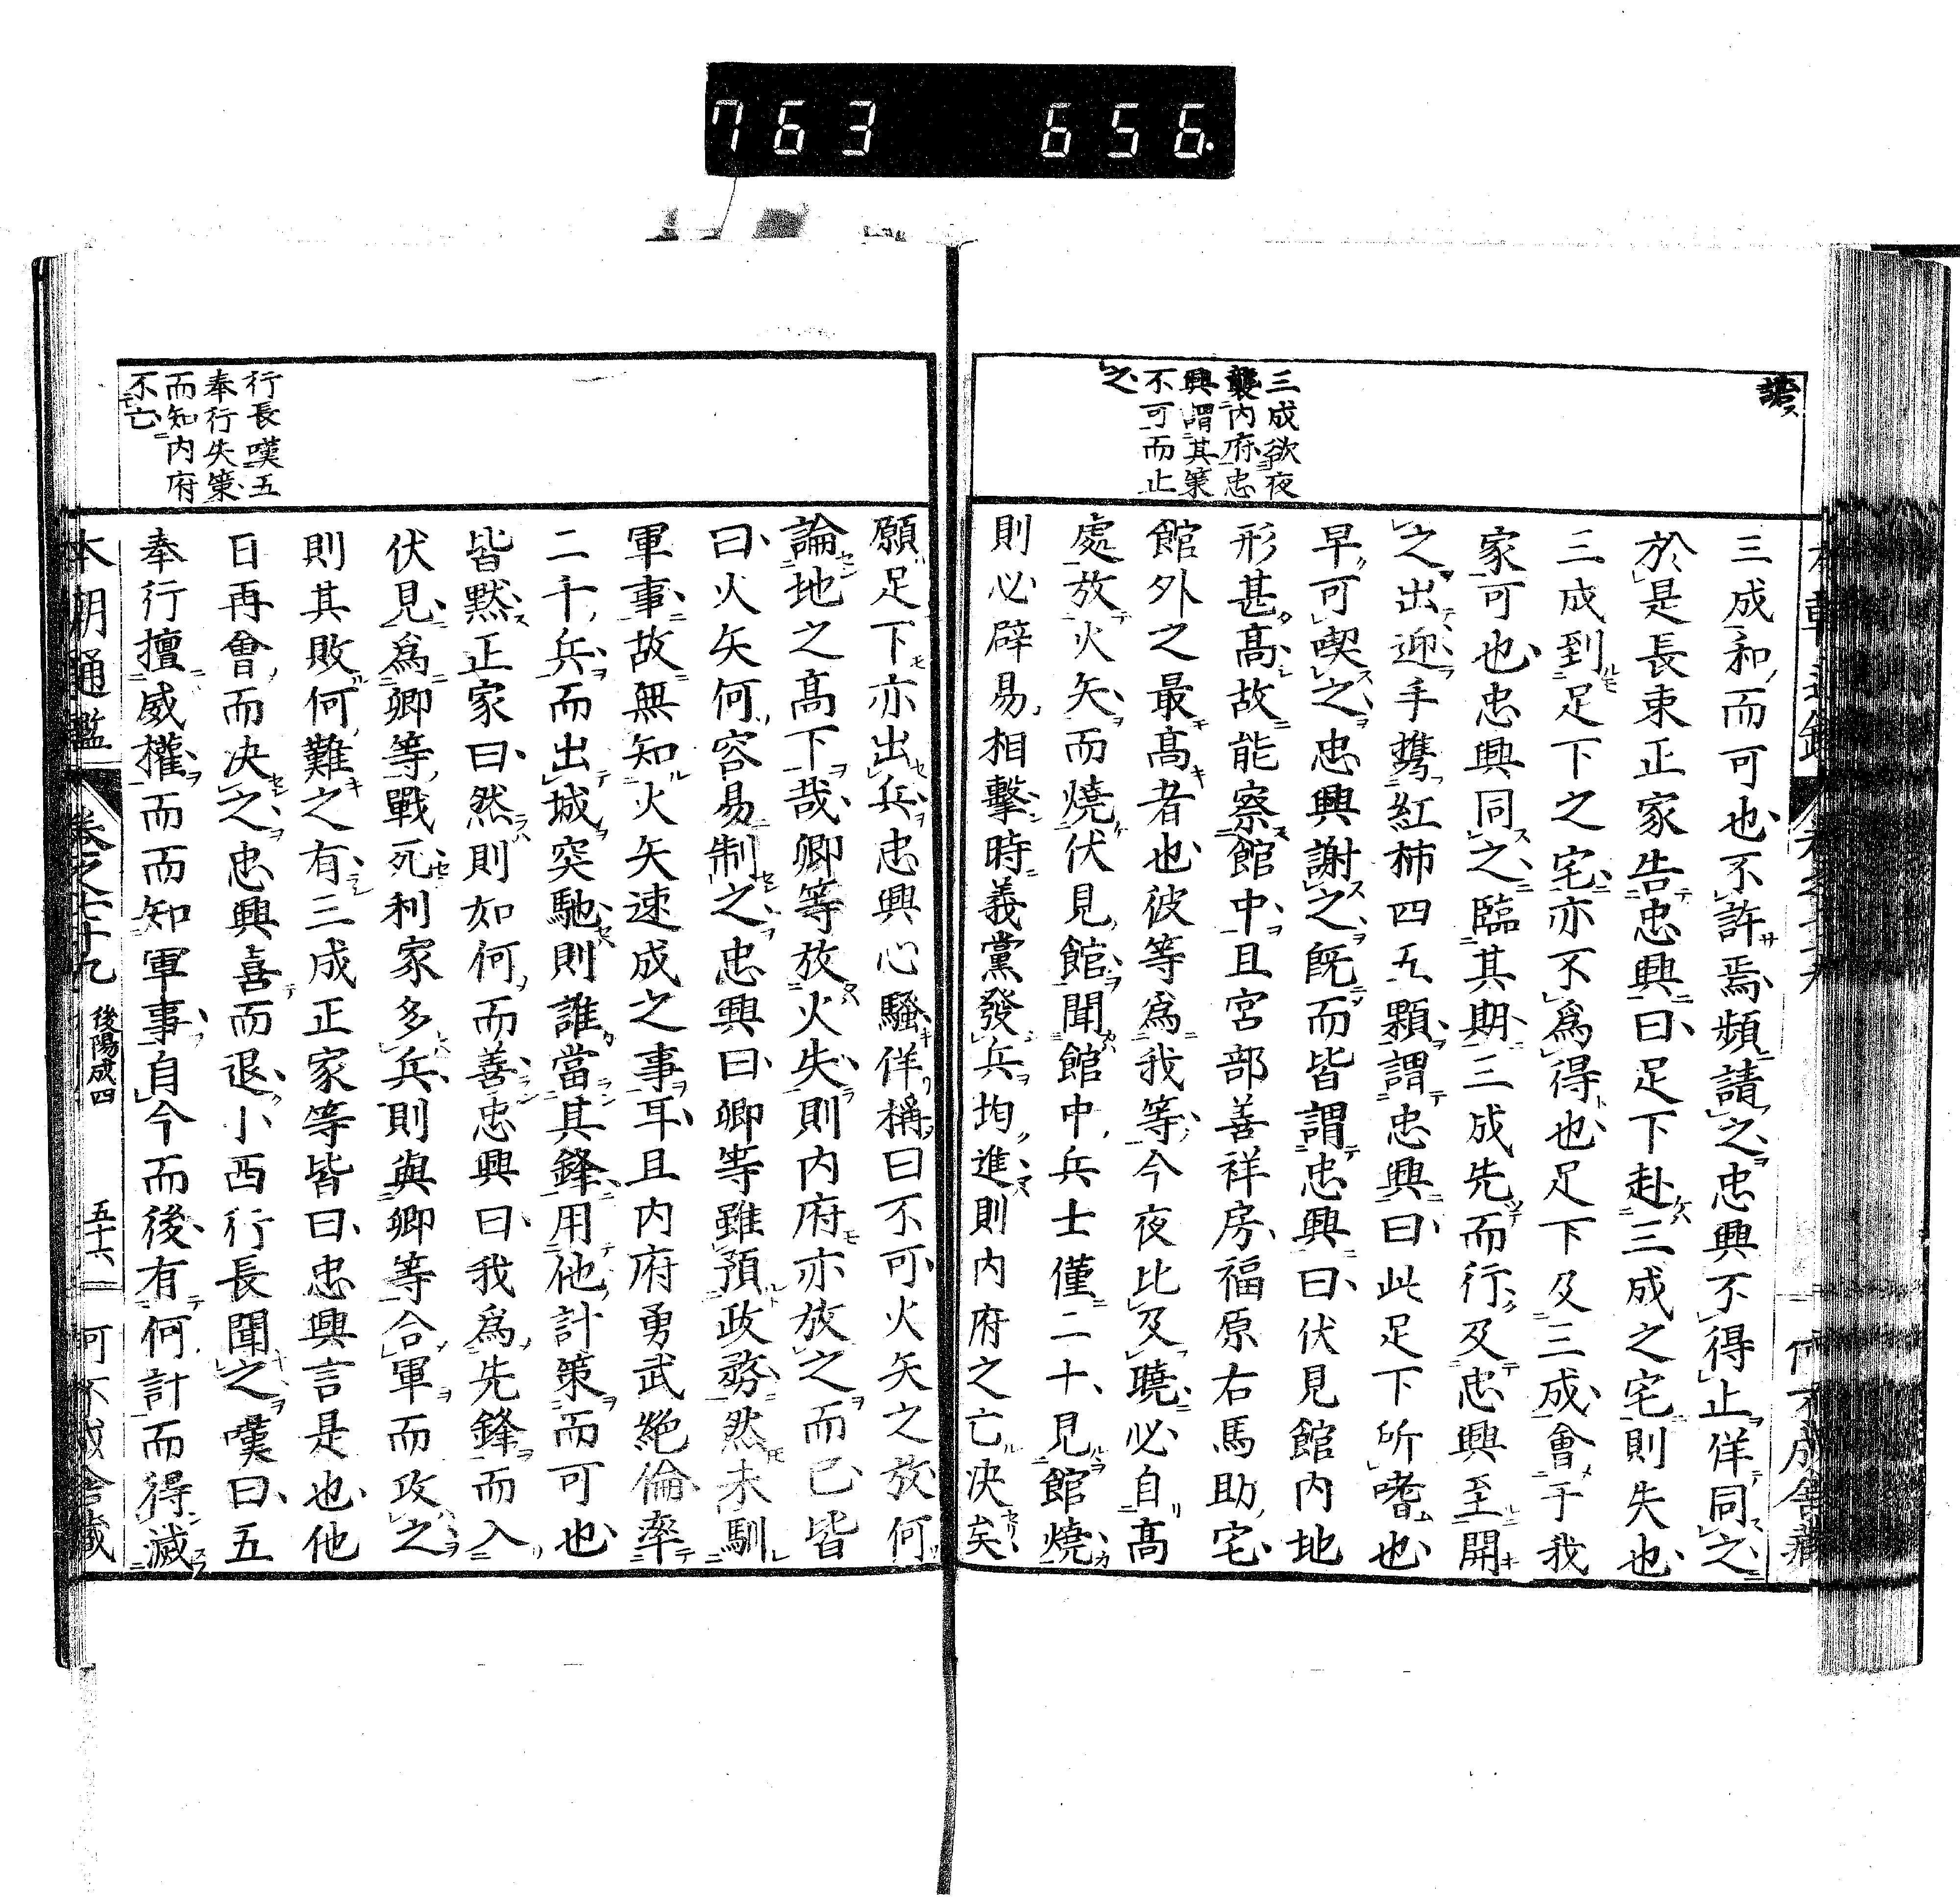 763 656.
三成和而可也不許焉頻請之忠興不得止佯同之
於是長束正家告忠興曰足下赴三成之宅則失也
三成到足下之宅亦不為得也足下及三成會于我
家可也忠興同之臨其期三成先而行及忠興至開
之出迎手携紅柿四五顆謂忠興曰此足下所嗜也
早可喫之忠興謝之既而皆謂忠興曰伏見館内地
形甚髙故能察館中且宮部善祥房福原右馬助宅
館外之最髙者也彼等為我等今夜比及曉必自髙
處放火矢而燒伏見館聞館中兵士僅二十見館燒
則必辟易相擊時義黨發兵均進則内府之亡决矣
三成欲夜
襲内府忠
興謂其策
不可而止
之
願足下亦出兵忠興心騷佯稱曰不可火矢之放何
論地之髙下哉卿等放火失則内府亦放之而已皆
曰火矢何容易制之忠興曰卿等雖預政務然未馴
軍事故無知火矢速成之事耳且内府勇武絶倫率
二千兵而出城突馳則誰當其鋒用他計策而可也
皆黙正家曰然則如何而善忠興曰我為先鋒而入
伏見為卿等戰死利家多兵則與卿等合軍而攻之
則其敗何難之有三成正家等皆曰忠興言是也他
日再會而决之忠興喜而退小西行長聞之嘆曰五
奉行擅威權而而知軍事自今而後有何計而得滅
行長嘆五
奉行失策
而知内府
不亡
本朝通鑑 卷之七十九 後陽成四 五十六 何不成舎藏